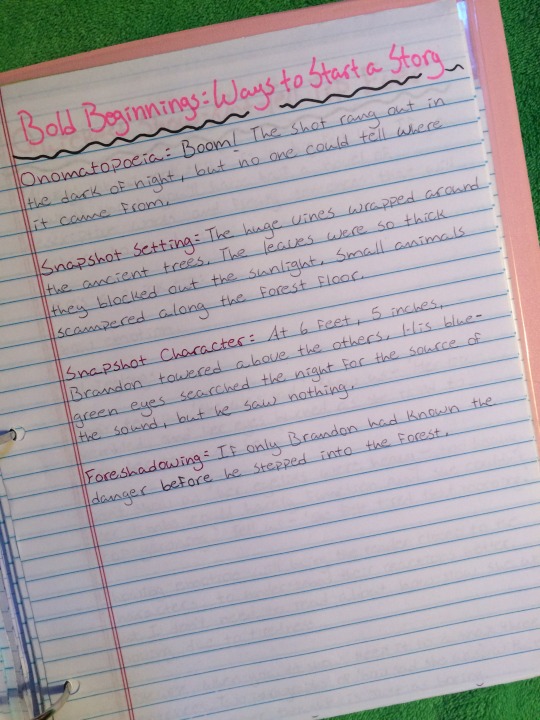 Bold Beginnings: Ways to Start a Story
Onomatopoeia: Boom! The shot rang out in
the dark of night, but no one could tell where
it came from.
Snapshot Setting: The huge vines wrapped around
the ancient trees. The leaves were so thick
they blocked out the sunlight. Small animals
scampered along the forest floor.
Snapshot Character: At 6 feet, 5 inches,
Brandon towered above the others. His blue-
green eyes searched the night for the source of
the sound, but he saw nothing.
Foreshadowing: If only Brandon had known the
danger before he stepped into the forest.